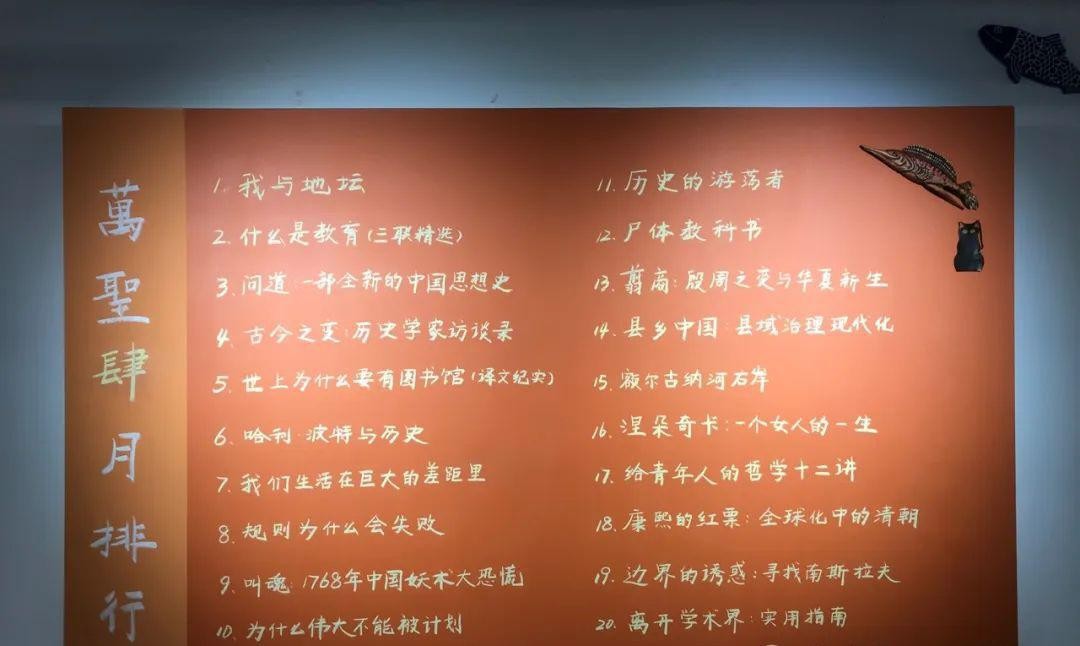 萬聖肆月排行
1. 我与地坛
2. 什么是教育(三联精选)
3. 问道:一部全新的中国思想史
4. 古今之变:历史学家访谈录
5. 世上为什么要有图书馆(译文纪实)
6. 哈利·波特与历史
7. 我们生活在巨大的差距里
8. 规则为什么会失败
9. 叫魂:1768年中国妖术大恐慌
10. 为什么伟大不能被计划
11. 历史的游荡者
12. 尸体教科书
13. 翦商:殷周之变与华夏新生
14. 县乡中国:县域治理现代化
15. 额尔古纳河右岸
16. 涅朵奇卡:一个女人的一生
17. 给青年人的哲学十二讲
18. 康熙的红票:全球化中的清朝
19. 边界的诱惑:寻找南斯拉夫
20. 离开学术界:实用指南